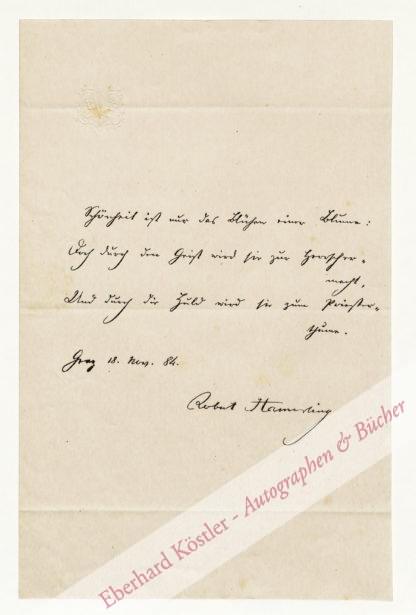 Schönheit ist nur das Blühen einer Blume:
Doch durch den Geist wird sie zur Herrscher-
macht,
Und durch die Huld wird sie zum Priester-
thume.
Graz 18. Nov. 84.
Robert Hamerling
Eberhard Köstler - Autographen & Bücher